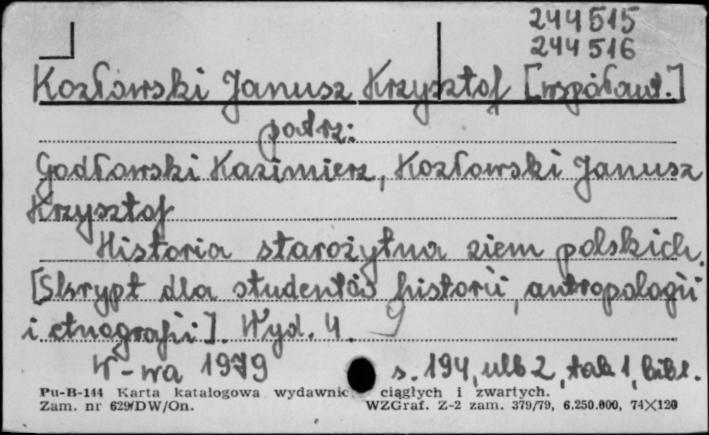 244515
244516
Kozłowski Janusz Krzysztof [współaut.]
patrz:
Godłowski Kazimierz, Kozłowski Janusz
Krzysztof
Historia starożytna ziem polskich.
[Skrypt dla studentów historii, antropologii
i etnografii]. Wyd. 4.
W-wa 1979 s. 194, ulb 2, tab 1, bibl.
Pu-B-144 Karta katalogowa wydawnic. ciągłych i zwartych.
Zam. nr 629/DW/On. WZGraf. Z-2 zam. 379/79, 6.250.000, 74×120